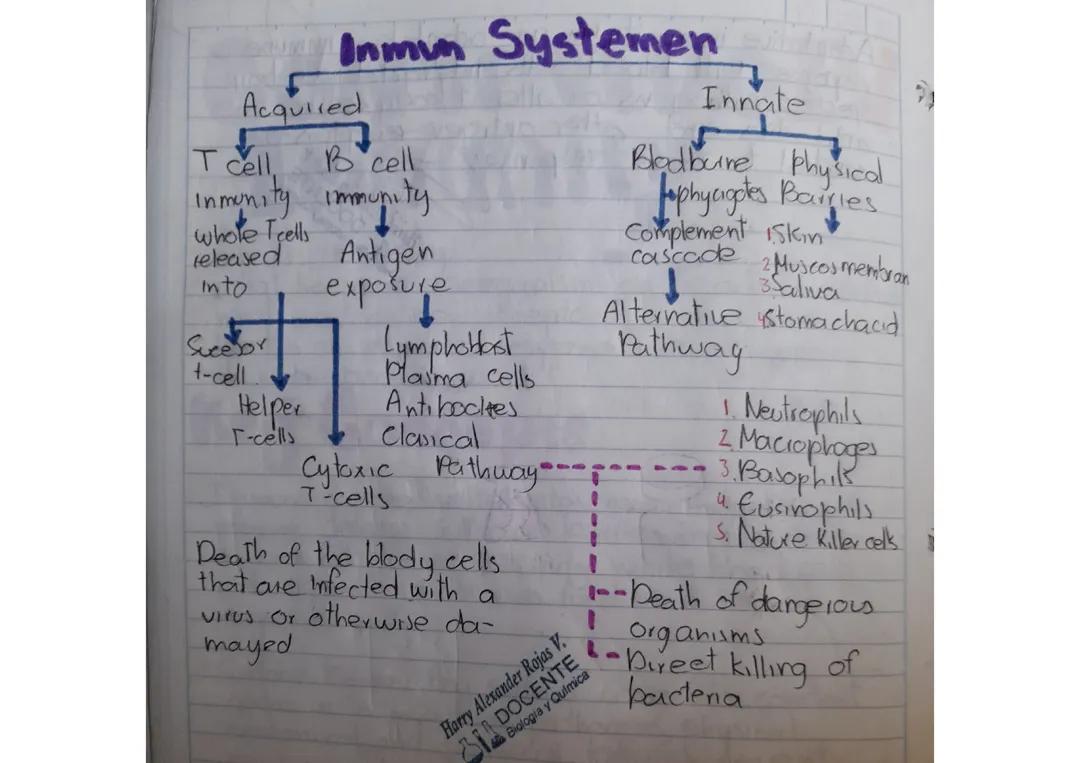 Inmun Systemen
Acquired
Innate
T cell
inmunity
whole Tcells
released
into
B cell
immunity
Antigen
exposure
Lymphoblast
Plasma cells
Antibodies
Clasical
Pathway
t-cell
Helper
T-cells
Cytoxic
T-cells
Death of the blody cells
that are infected with a
virus or otherwise da-
mayed
phycigotes
Complement
cascade
Alternative
Pathway
Physical
Barries
1. Skin
2. Muscosmembran
3. Saliva
4. Stomachacid
1. Neutrophils
2. Macrophages
3. Basophils
4. Eusinophils
5. Nature Killer cells
Death of dangerous
organisms
Direct killing of
bacteria
Harry Alexander Rojas V.
DOCENTE
Biología y Química